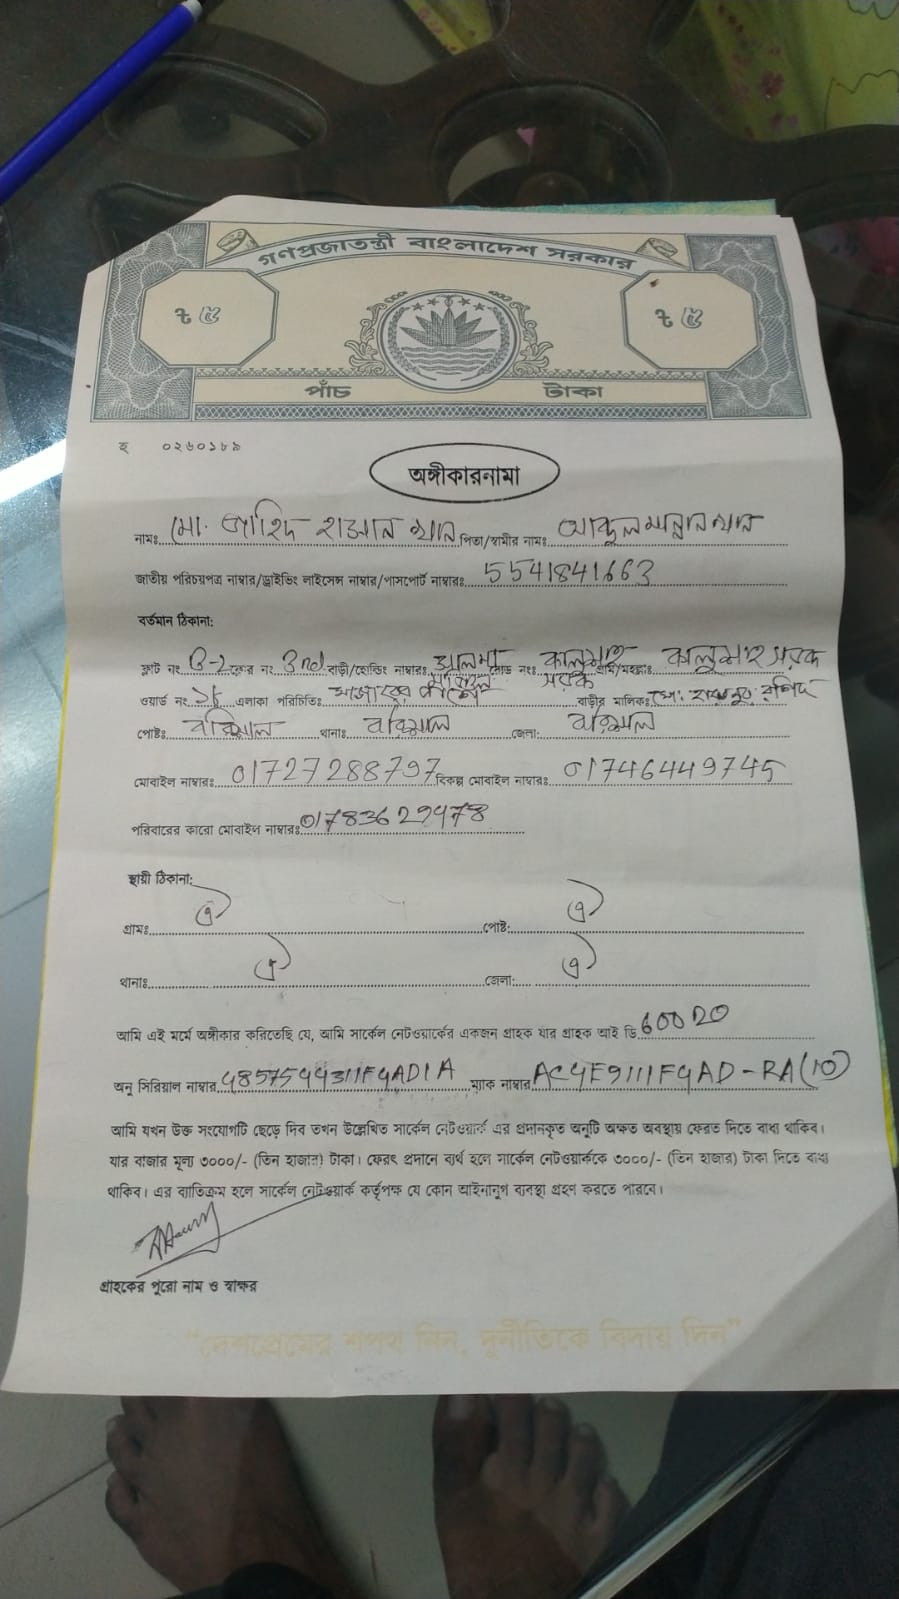 গণপ্রজাতন্ত্রী বাংলাদেশ সরকার
৳ ৫ ৳ ৫
পাঁচ টাকা
হ ০২৬০১৮৯
অঙ্গীকারনামা
নামঃ মো. জাহিদ হাসান খান পিতা/স্বামীর নামঃ আব্দুল মান্নান খান
জাতীয় পরিচয়পত্র নাম্বার/ড্রাইভিং লাইসেন্স নাম্বার/পাসপোর্ট নাম্বারঃ 5541841663
বর্তমান ঠিকানা:
ফ্লাট নং B-2 ফ্লোর নং 3nd বাড়ী/হোল্ডিং নাম্বারঃ রোড নং কালুশাহ সরক গ্রাম/মহল্লাঃ কালুশাহ সরক
ওয়ার্ড নং ১৮ এলাকা পরিচিতিঃ বাড়ীর মালিকঃ মো: হারুনুর রশিদ
পোষ্টঃ বরিশাল থানাঃ বরিশাল জেলা: বরিশাল
মোবাইল নাম্বারঃ 01727288797 বিকল্প মোবাইল নাম্বারঃ 01746449745
পরিবারের কারো মোবাইল নাম্বারঃ
স্থায়ী ঠিকানা:
গ্রামঃ ঐ পোষ্ট: ঐ
থানাঃ ঐ জেলা: ঐ
আমি এই মর্মে অঙ্গীকার করিতেছি যে, আমি সার্কেল নেটওয়ার্কের একজন গ্রাহক যার গ্রাহক আই ডি
অনু সিরিয়াল নাম্বার 4857544311F4AD1A ম্যাক নাম্বার AC4E9111F4AD-RA(10)
আমি যখন উক্ত সংযোগটি ছেড়ে দিব তখন উল্লেখিত সার্কেল নেটওয়ার্ক এর প্রদানকৃত অনুটি অক্ষত অবস্থায় ফেরত দিতে বাধ্য থাকিব।
যার বাজার মূল্য ৩০০০/- (তিন হাজার) টাকা। ফেরৎ প্রদানে ব্যর্থ হলে সার্কেল নেটওয়ার্ককে ৩০০০/- (তিন হাজার) টাকা দিতে বাধ্য
থাকিব। এর ব্যতিক্রম হলে সার্কেল নেটওয়ার্ক কর্তৃপক্ষ যে কোন আইনানুগ ব্যবস্থা গ্রহণ করতে পারবে।
গ্রাহকের পুরো নাম ও স্বাক্ষর
“দেশপ্রেমের শপথ নিন, দুর্নীতিকে বিদায় দিন”